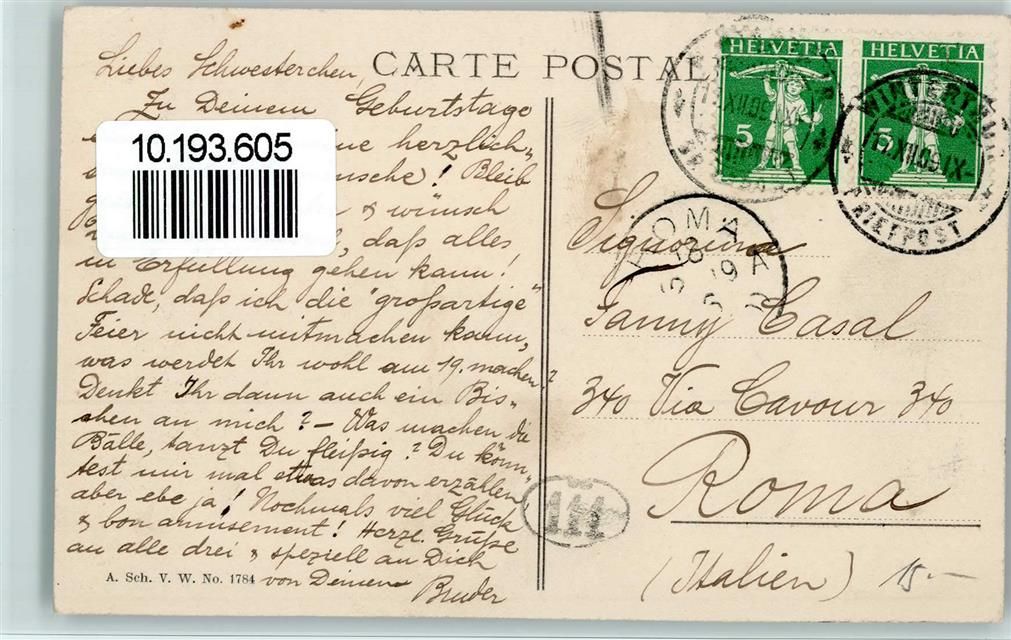 CARTE POSTALE
Liebes Schwesterchen,
Zu Deinem Geburtstage
herzlich-
10.193.605
! Bleib
& wünsch
, daß alles
in Erfüllung gehen kann!
Schade, daß ich die "großartige"
Feier nicht mitmachen kann,
was werdet Ihr wohl am 19. machen?
Denkt Ihr dann auch ein Bis-
chen an mich? – Was machen die
Bälle, tanzt Du fleißig? Du könn-
test mir mal etwas davon erzählen
aber ebe ja! Nochmals viel Glück
& bon amusement! Herzl. Grüße
an alle drei & speziell an Dich
von Deinem
Bruder
A. Sch. V. W. No. 1784
HELVETIA
5
HELVETIA
5
WINTERTHUR
BRIEFPOST
ROMA
Signorina
Fanny Casal
340 Via Cavour 340
Roma
(Italien)
111
15.–